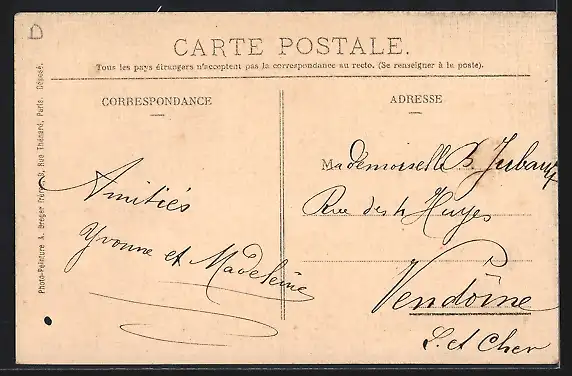 CARTE POSTALE.
Tous les pays étrangers n'acceptent pas la correspondance au recto. (Se renseigner à la poste).
CORRESPONDANCE
ADRESSE
Amitiés
Yvonne et Madeleine
Mademoiselle B. Jubault
Rue des 4 Huyes
Vendôme
L. et Cher
Photo-Peinture A. Breger Frères, 9, Rue Thénard, Paris. Déposé.
D